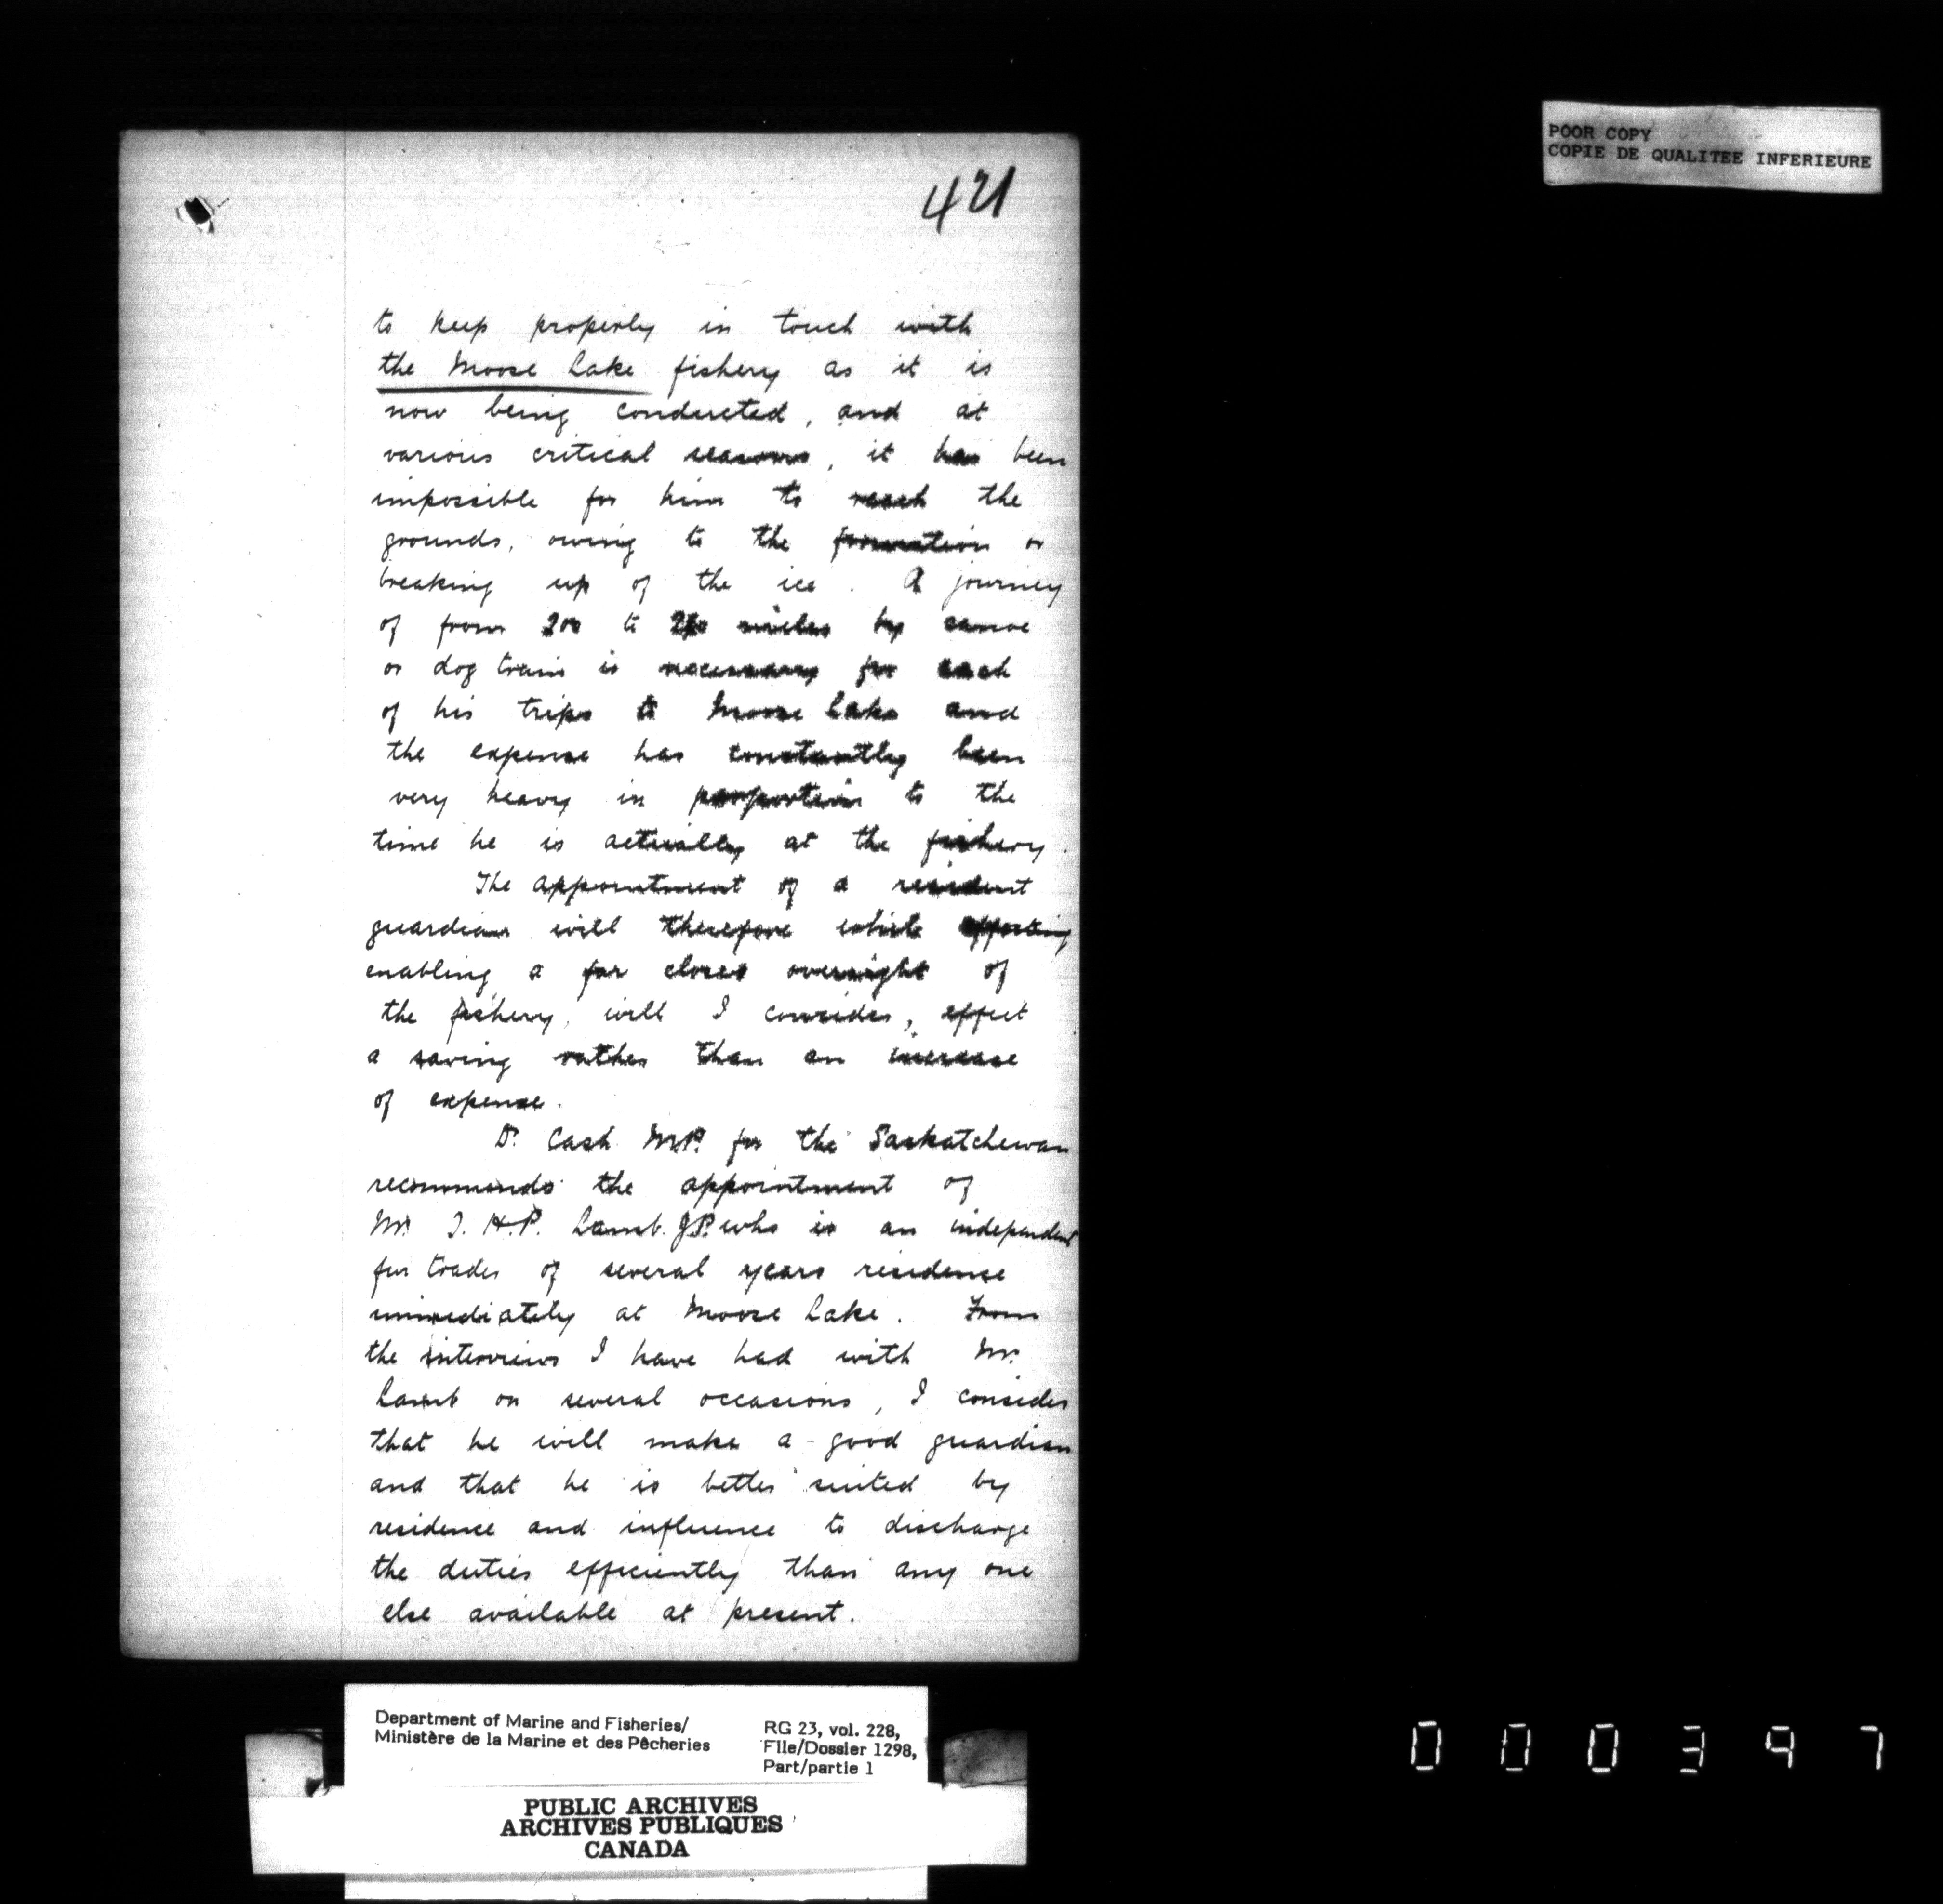 POOR COPY
COPIE DE QUALITEE INFERIEURE
421
to keep properly in touch with
the Moose Lake fishery as it is
now being conducted, and at
various critical seasons, it has been
impossible for him to reach the
grounds, owing to the formation or
breaking up of the ice. A journey
of from 200 to miles by canoe
or dog train is necessary for each
of his trips to Moose Lake and
the expense has constantly been
very heavy in proportion to the
time he is actually at the fishery.
The appointment of a resident
guardian will therefore while
enabling a far closer oversight of
the fishery, will I consider, effect
a saving rather than an increase
of expense.
Dr. Cash M.P. for the Saskatchewan
recommends the appointment of
Mr. T. H.P. Lamb. J.P. who is an independent
fur trader of several years residence
immediately at Moose Lake. From
the interviews I have had with Mr.
Lamb on several occasions, I consider
that he will make a good guardian
and that he is better suited by
residence and influence to discharge
the duties efficiently than any one
else available at present.
Department of Marine and Fisheries/
Ministère de la Marine et des Pêcheries
RG 23, vol. 228,
File/Dossier 1298,
Part/partie 1
PUBLIC ARCHIVES
ARCHIVES PUBLIQUES
CANADA
000397